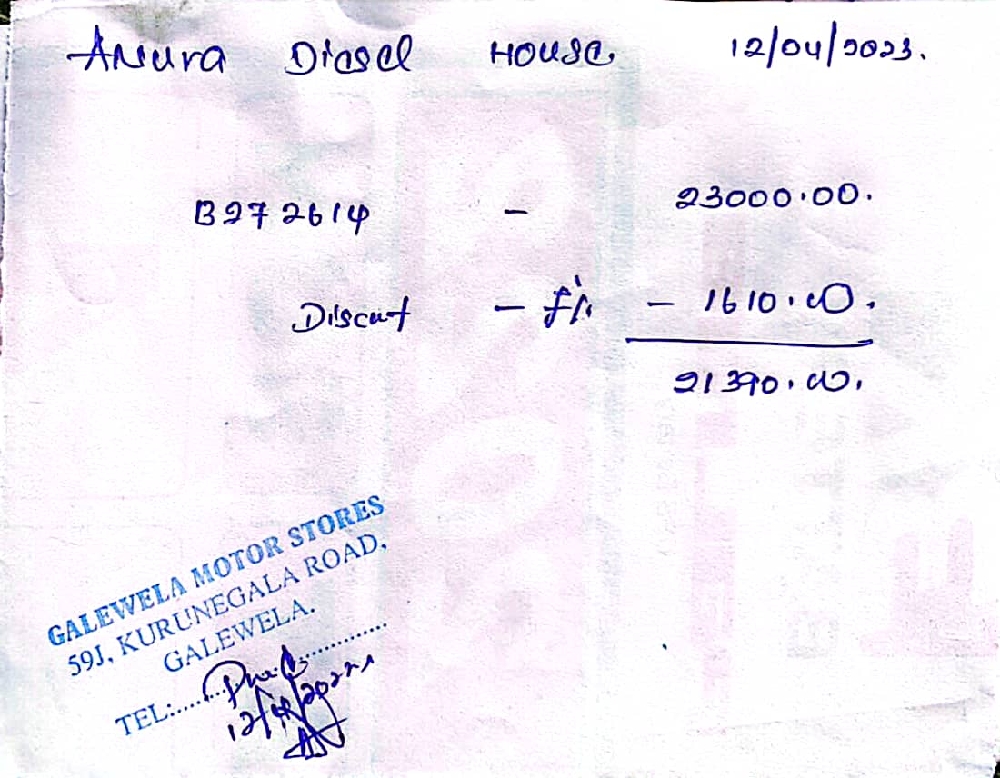 Anura Diesel House 12/04/2023.
B272614 - 23000.00.
Discut - 7% - 1610.00.
21390.00.
GALEWELA MOTOR STORES
59J, KURUNEGALA ROAD,
GALEWELA.
TEL: